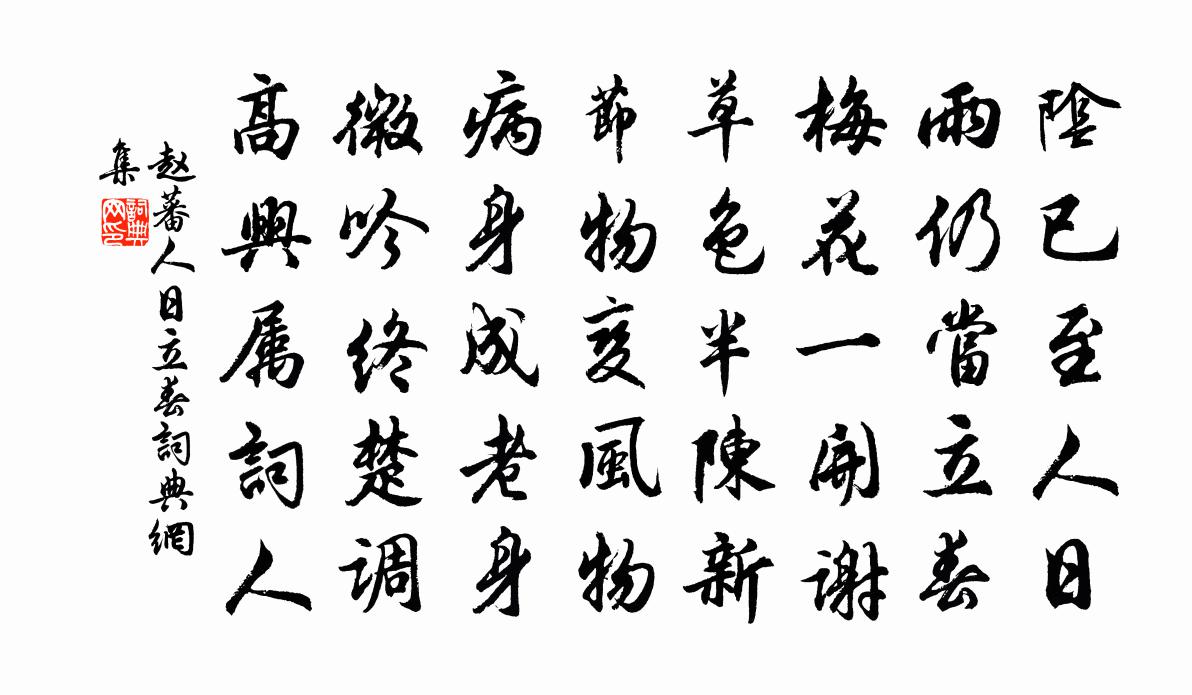 陰已至人日
雨仍當立春
梅花一開謝
草色半陳新
節物變風物
病身成老身
微吟終楚调
高興属詞人
赵蕃人日立春詞典網
集
詞典
网印